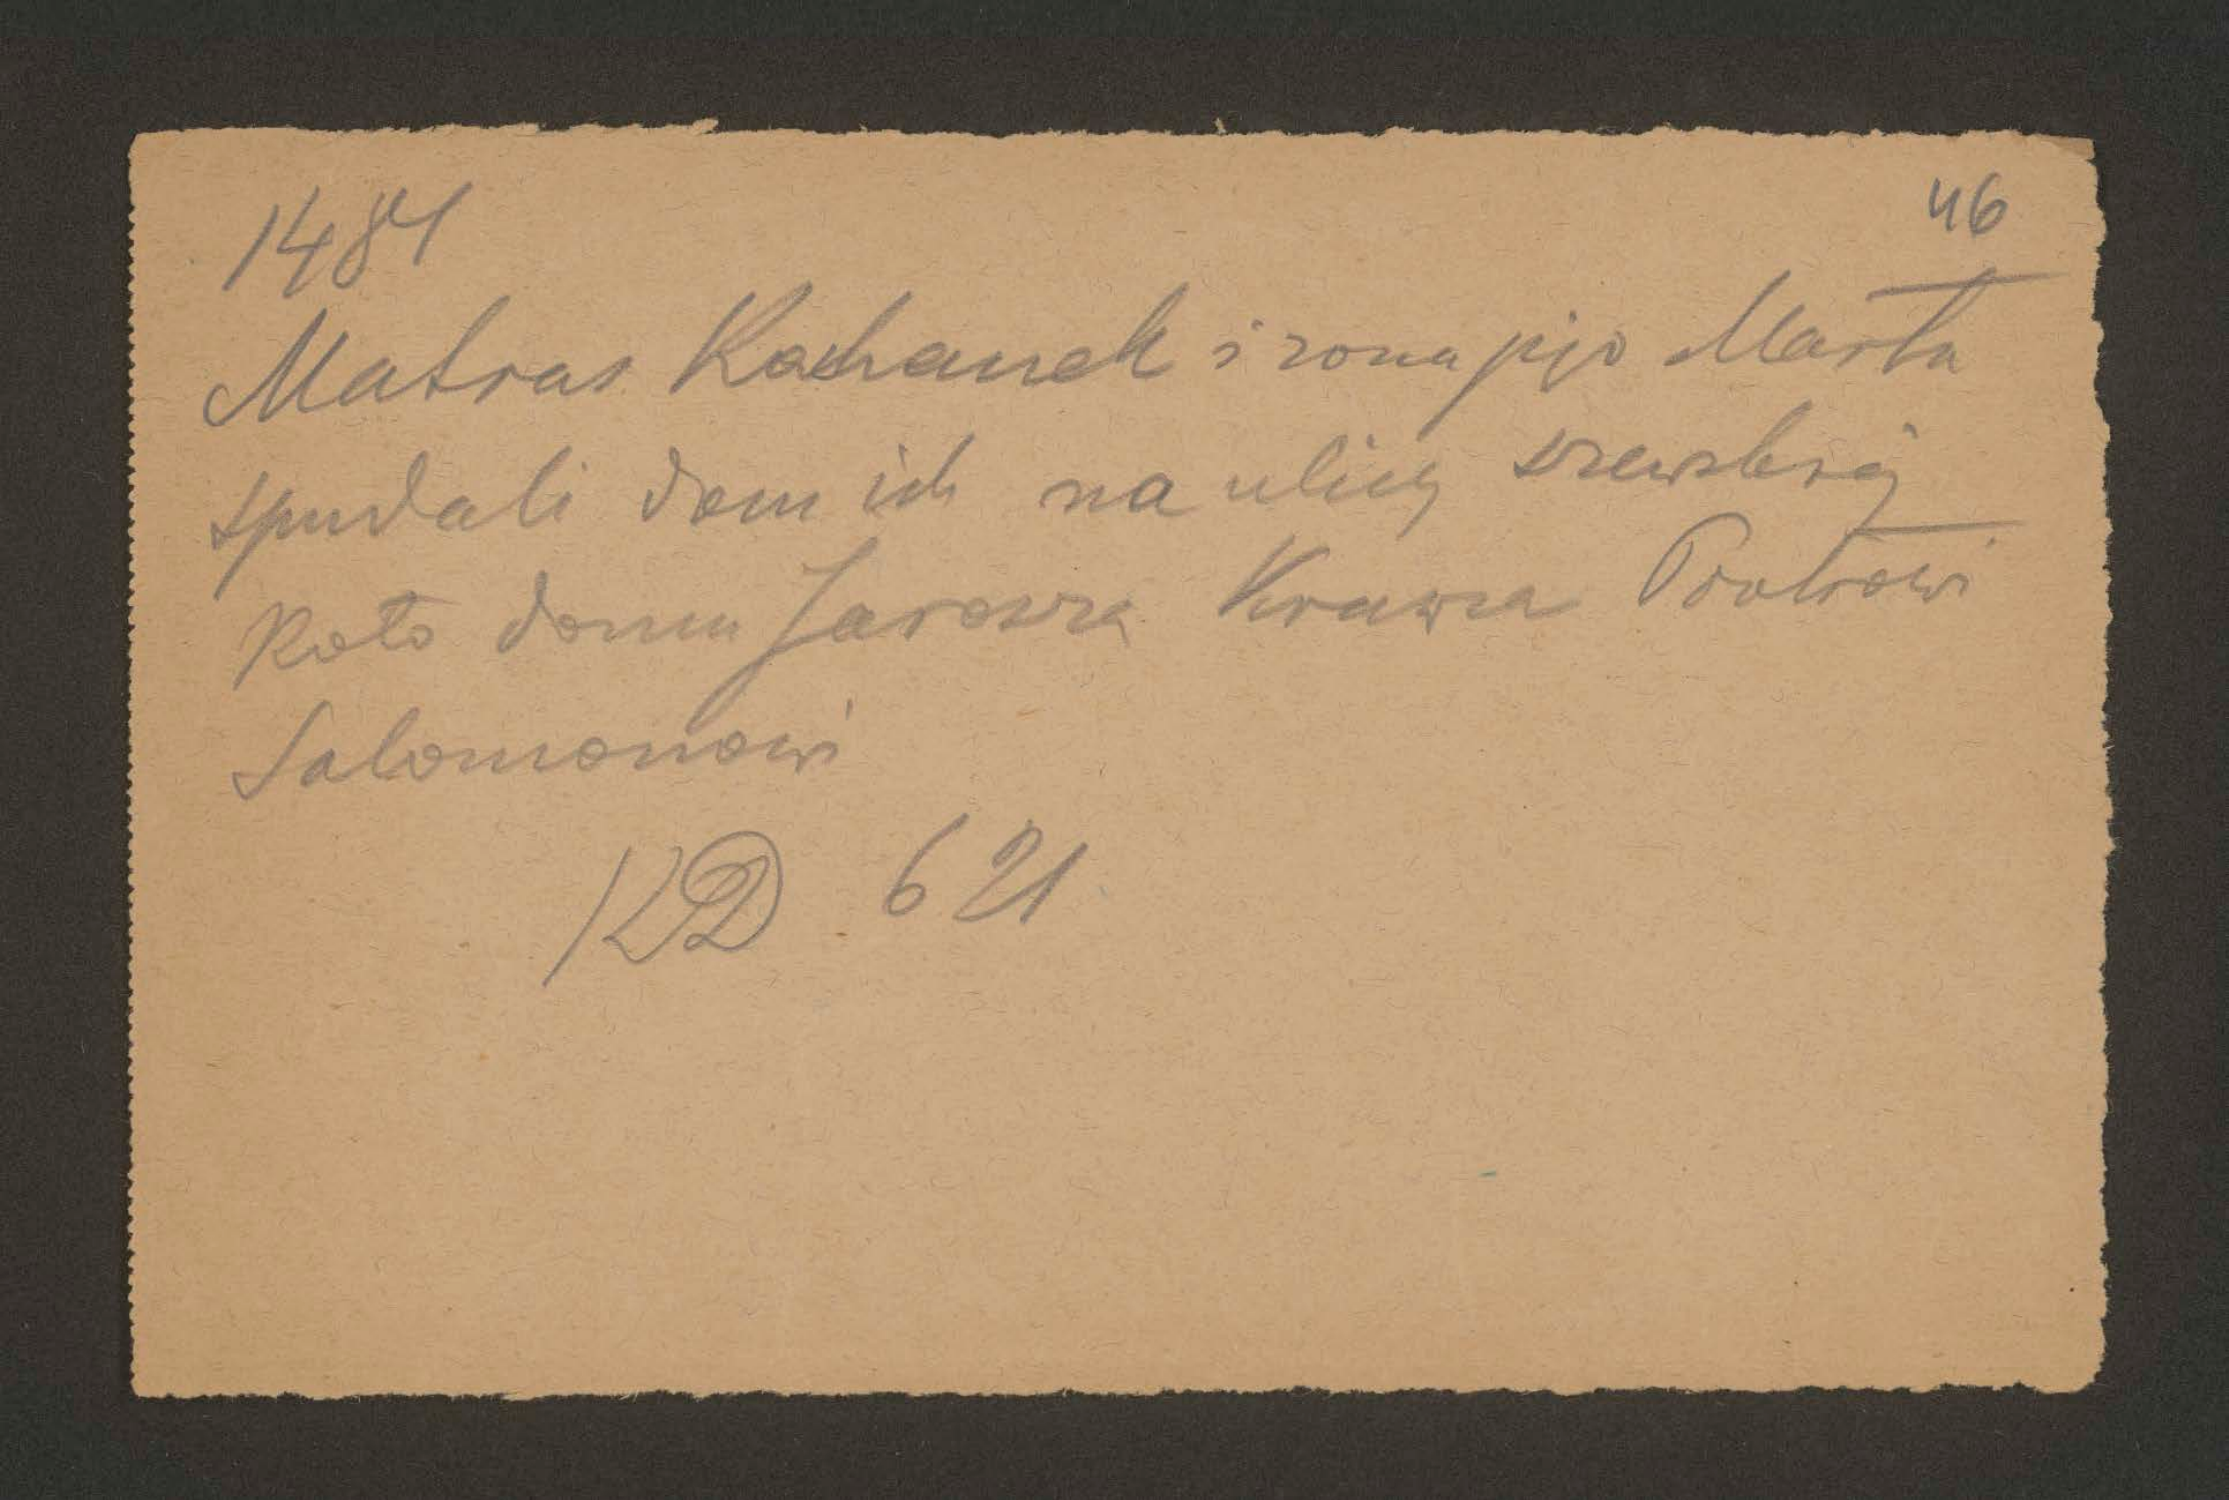 1484 46
Matras Kochanek i zona jijo Marta
spudali dom ich na ulicy szewskiej
Koło domu Jarosza Krawca Piotrowi
Salomonowi
KD 621